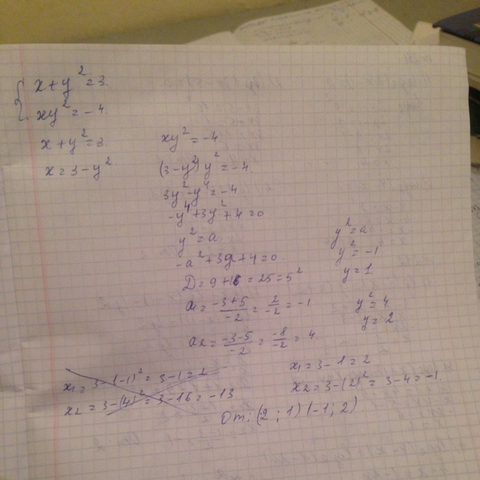 x + y² = 3
xy² = -4
x + y² = 3
x = 3 - y²
xy² = -4
(3 - y²) y² = -4
3y² - y⁴ = -4
-y⁴ + 3y² + 4 = 0
y² = a
-a² + 3a + 4 = 0
D = 9 + 16 = 25 = 5²
a₁ = (-3+5)/(-2) = 2/(-2) = -1
a₂ = (-3-5)/(-2) = (-8)/(-2) = 4
y² = a
y² = -1
y = 1
y² = 4
y = 2
x₁ = 3 - (-1)² = 3 - 1 = 2
x₂ = 3 - (4)² = 3 - 16 = -13
x₁ = 3 - 1 = 2
x₂ = 3 - (2)² = 3 - 4 = -1
От: (2 ; 1) (-1 ; 2)